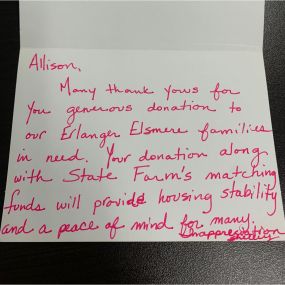 Allison,
Many thank yows for
you generous donation to
our Erlanger Elsmere families
in need. Your donation along
with State Farm's matching
funds will provide housing stability
and a peace of mind for many.